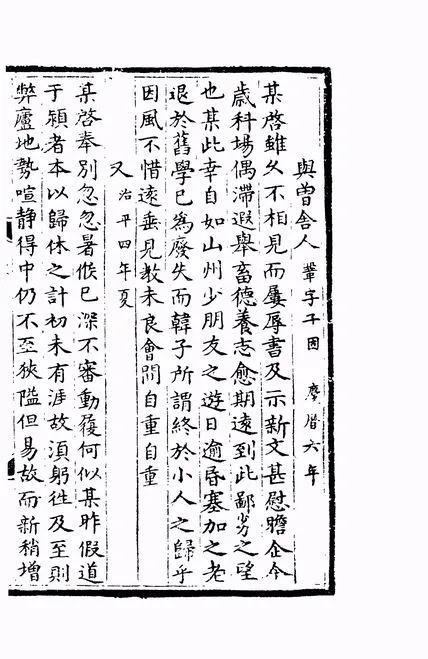 與曾舍人 鞏字子固 慶曆六年
某啓雖久不相見而屢辱書及示新文甚慰瞻企今
歲科場偶滯遐舉畜德養志愈期遠到此鄙劣之望
也某此幸自如山州少朋友之遊日逾昏塞加之老
退於舊學已為廢失而韓子所謂終於小人之歸乎
因風不惜遠垂見教未良會間自重自重
又 治平四年夏
某啓奉別忽忽暑候已深不審動履何似某昨假道
于潁者本以歸休之計初未有涯故須躬往及至則
弊廬地勢喧静得中仍不至狹隘但易故而新稍增